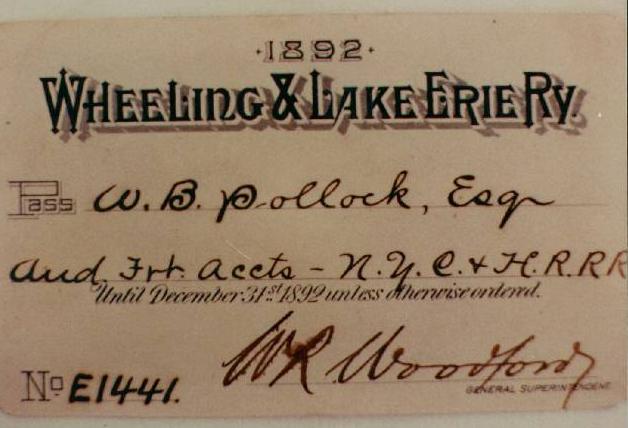 ·1892·
WHEELING & LAKE ERIE RY.
Pass W. B. Pollock, Esqr
Aud. Frt. Accts - N.Y. C. & H. R. R R
Until December 31st 1892 unless otherwise ordered.
W R Woodford
GENERAL SUPERINTENDENT
No E1441.